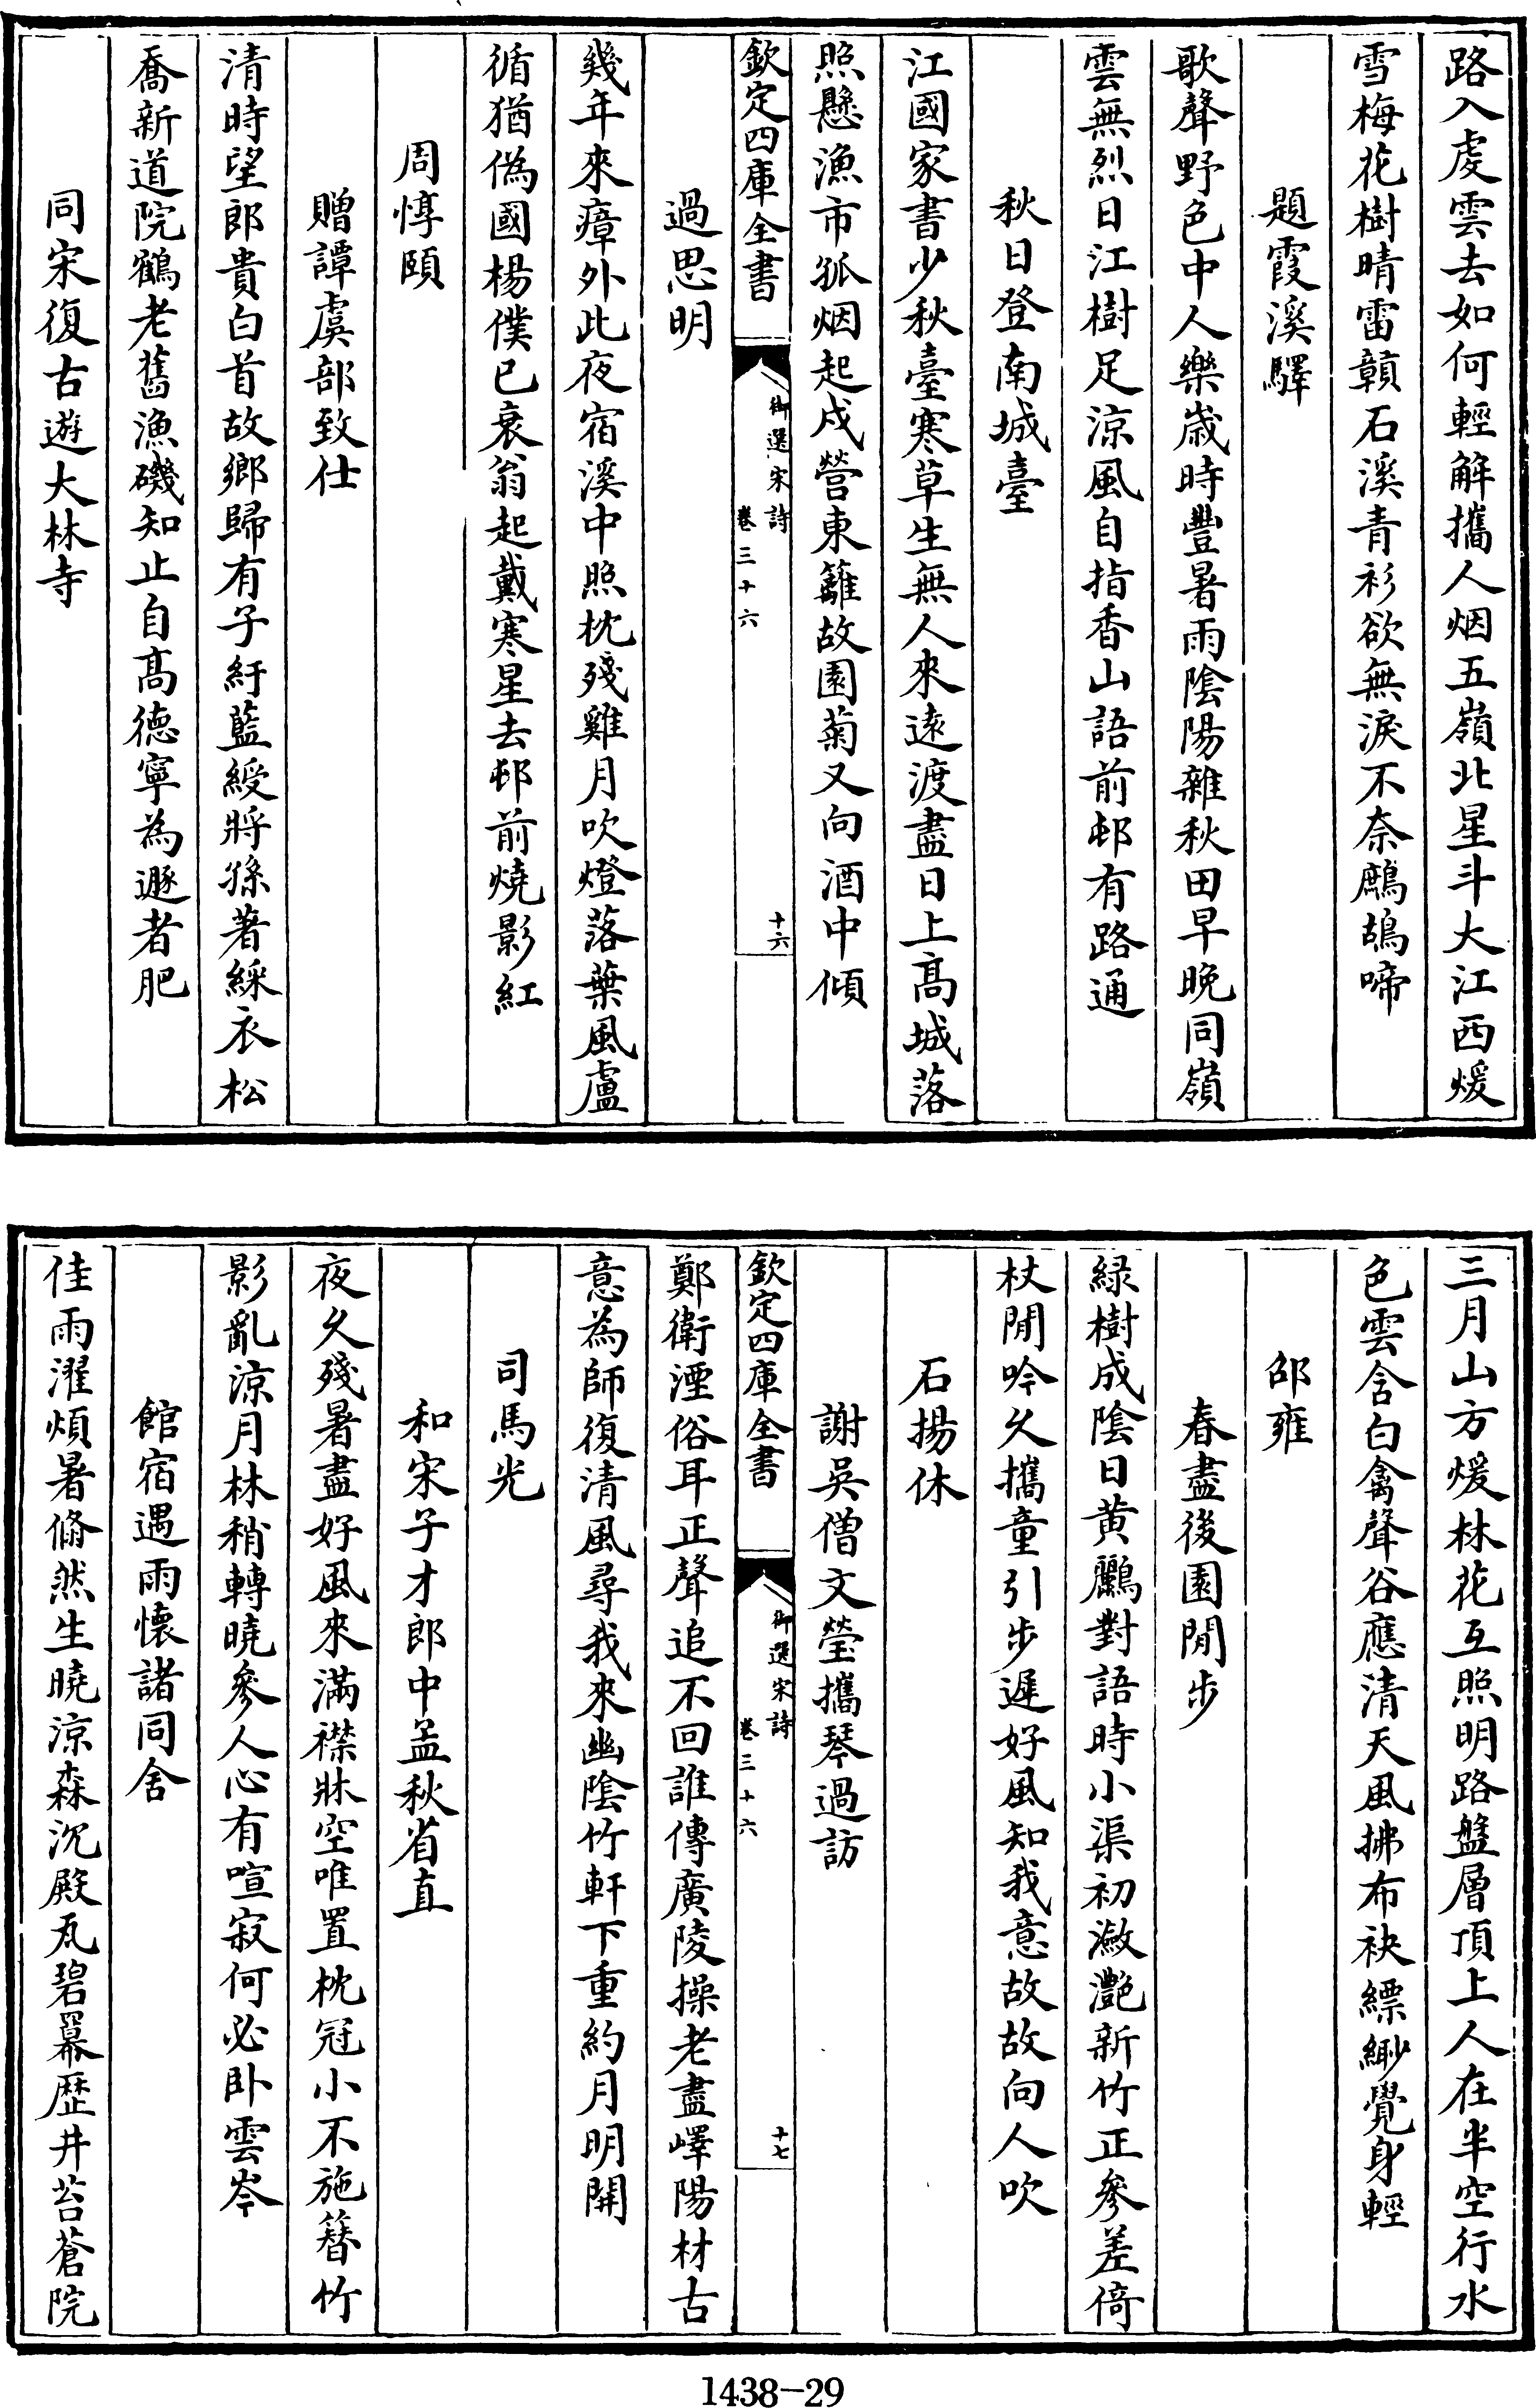 路入虔雲去如何輕解攜人烟五嶺北星斗大江西煖
雪梅花樹晴雷贑石溪青衫欲無淚不奈鷓鴣啼
題霞溪驛
歌聲野色中人樂歳時豐暑雨陰陽雜秋田早晚同嶺
雲無烈日江樹足涼風自指香山語前邨有路通
秋日登南城臺
江國家書少秋臺寒草生無人來逺渡盡日上髙城落
照懸漁市孤烟起戍營東籬故園菊又向酒中傾
欽定四庫全書
御選宋詩
卷三十六
十六
過思明
幾年來瘴外此夜宿溪中照枕殘雞月吹燈落葉風盧
循猶偽國楊僕已衰翁起戴寒星去邨前燒影紅
周惇頤
贈譚虞部致仕
清時望郎貴白首故鄉歸有子紆藍綬將孫著綵衣松
喬新道院鶴老舊漁磯知止自髙德寧為遯者肥
同宋復古遊大林寺
三月山方煖林花互照明路盤層頂上人在半空行水
色雲含白禽聲谷應清天風拂布袂縹緲覺身輕
邵雍
春盡後園閒步
緑樹成陰日黄鸝對語時小渠初瀲灔新竹正參差倚
杖閒吟久攜童引步遲好風知我意故故向人吹
石揚休
謝吳僧文瑩攜琴過訪
欽定四庫全書
御選宋詩
卷三十六
十七
鄭衛湮俗耳正聲追不回誰傳廣陵操老盡嶧陽材古
意為師復清風尋我來幽陰竹軒下重約月明開
司馬光
和宋子才郎中孟秋省直
夜久殘暑盡好風來滿襟牀空唯置枕冠小不施簮竹
影亂涼月林稍轉曉參人心有喧寂何必卧雲岑
館宿遇雨懷諸同舍
佳雨濯煩暑翛然生曉涼森沉殿瓦碧羃歴井苔蒼院
1438-29